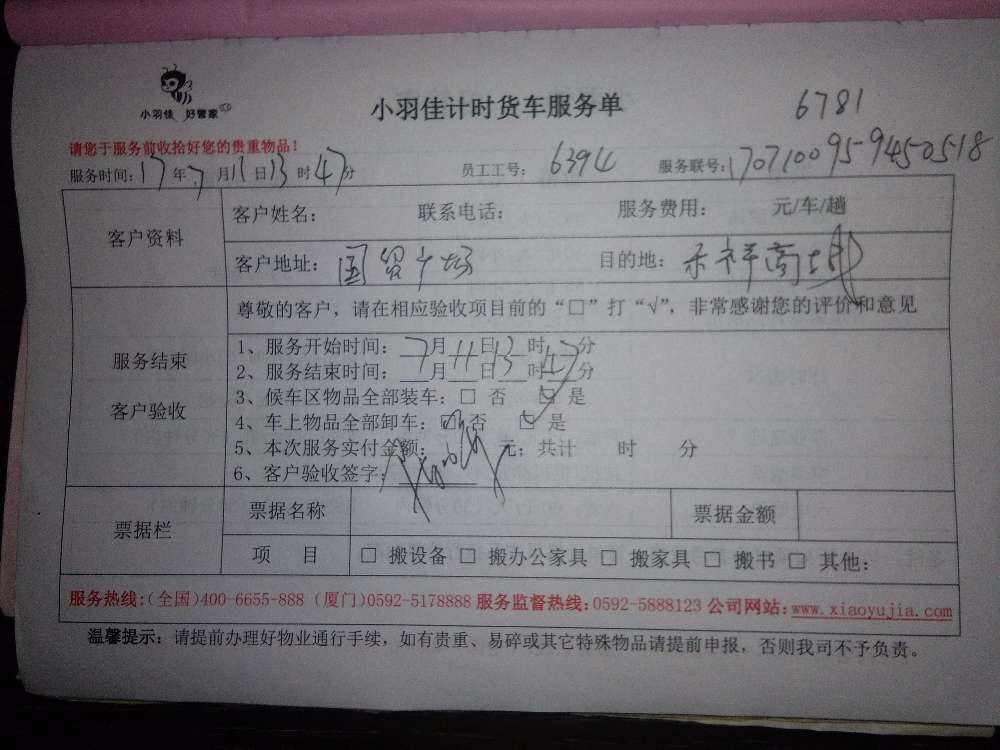 小羽佳 好管家
小羽佳计时货车服务单
6781
请您于服务前收拾好您的贵重物品！
服务时间：17年7月11日13时47分 员工工号：6394 服务联号：1707100959450518
客户资料
客户姓名： 联系电话： 服务费用： 元/车/趟
客户地址：国贸广场 目的地：禾祥商城
尊敬的客户，请在相应验收项目前的“□”打“√”，非常感谢您的评价和意见
服务结束
客户验收
1、服务开始时间：7月11日13时47分
2、服务结束时间：___月___日___时___分
3、候车区物品全部装车：□ 否 □ 是
4、车上物品全部卸车：□ 否 □ 是
5、本次服务实付金额： 元；共计 时 分
6、客户验收签字：
票据栏
票据名称 票据金额
项 目 □ 搬设备 □ 搬办公家具 □ 搬家具 □ 搬书 □ 其他：
服务热线:(全国)400-6655-888 (厦门)0592-5178888 服务监督热线:0592-5888123 公司网站:www.xiaoyujia.com
温馨提示：请提前办理好物业通行手续，如有贵重、易碎或其它特殊物品请提前申报，否则我司不予负责。